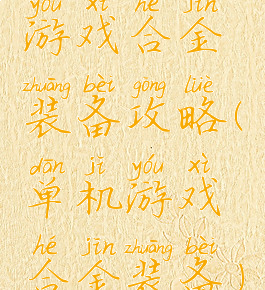 yóu xì hé jīn
游戏合金
zhuāng bèi gōng lüè
装备攻略(
dān jī yóu xì
单机游戏
hé jīn zhuāng bèi
合金装备)